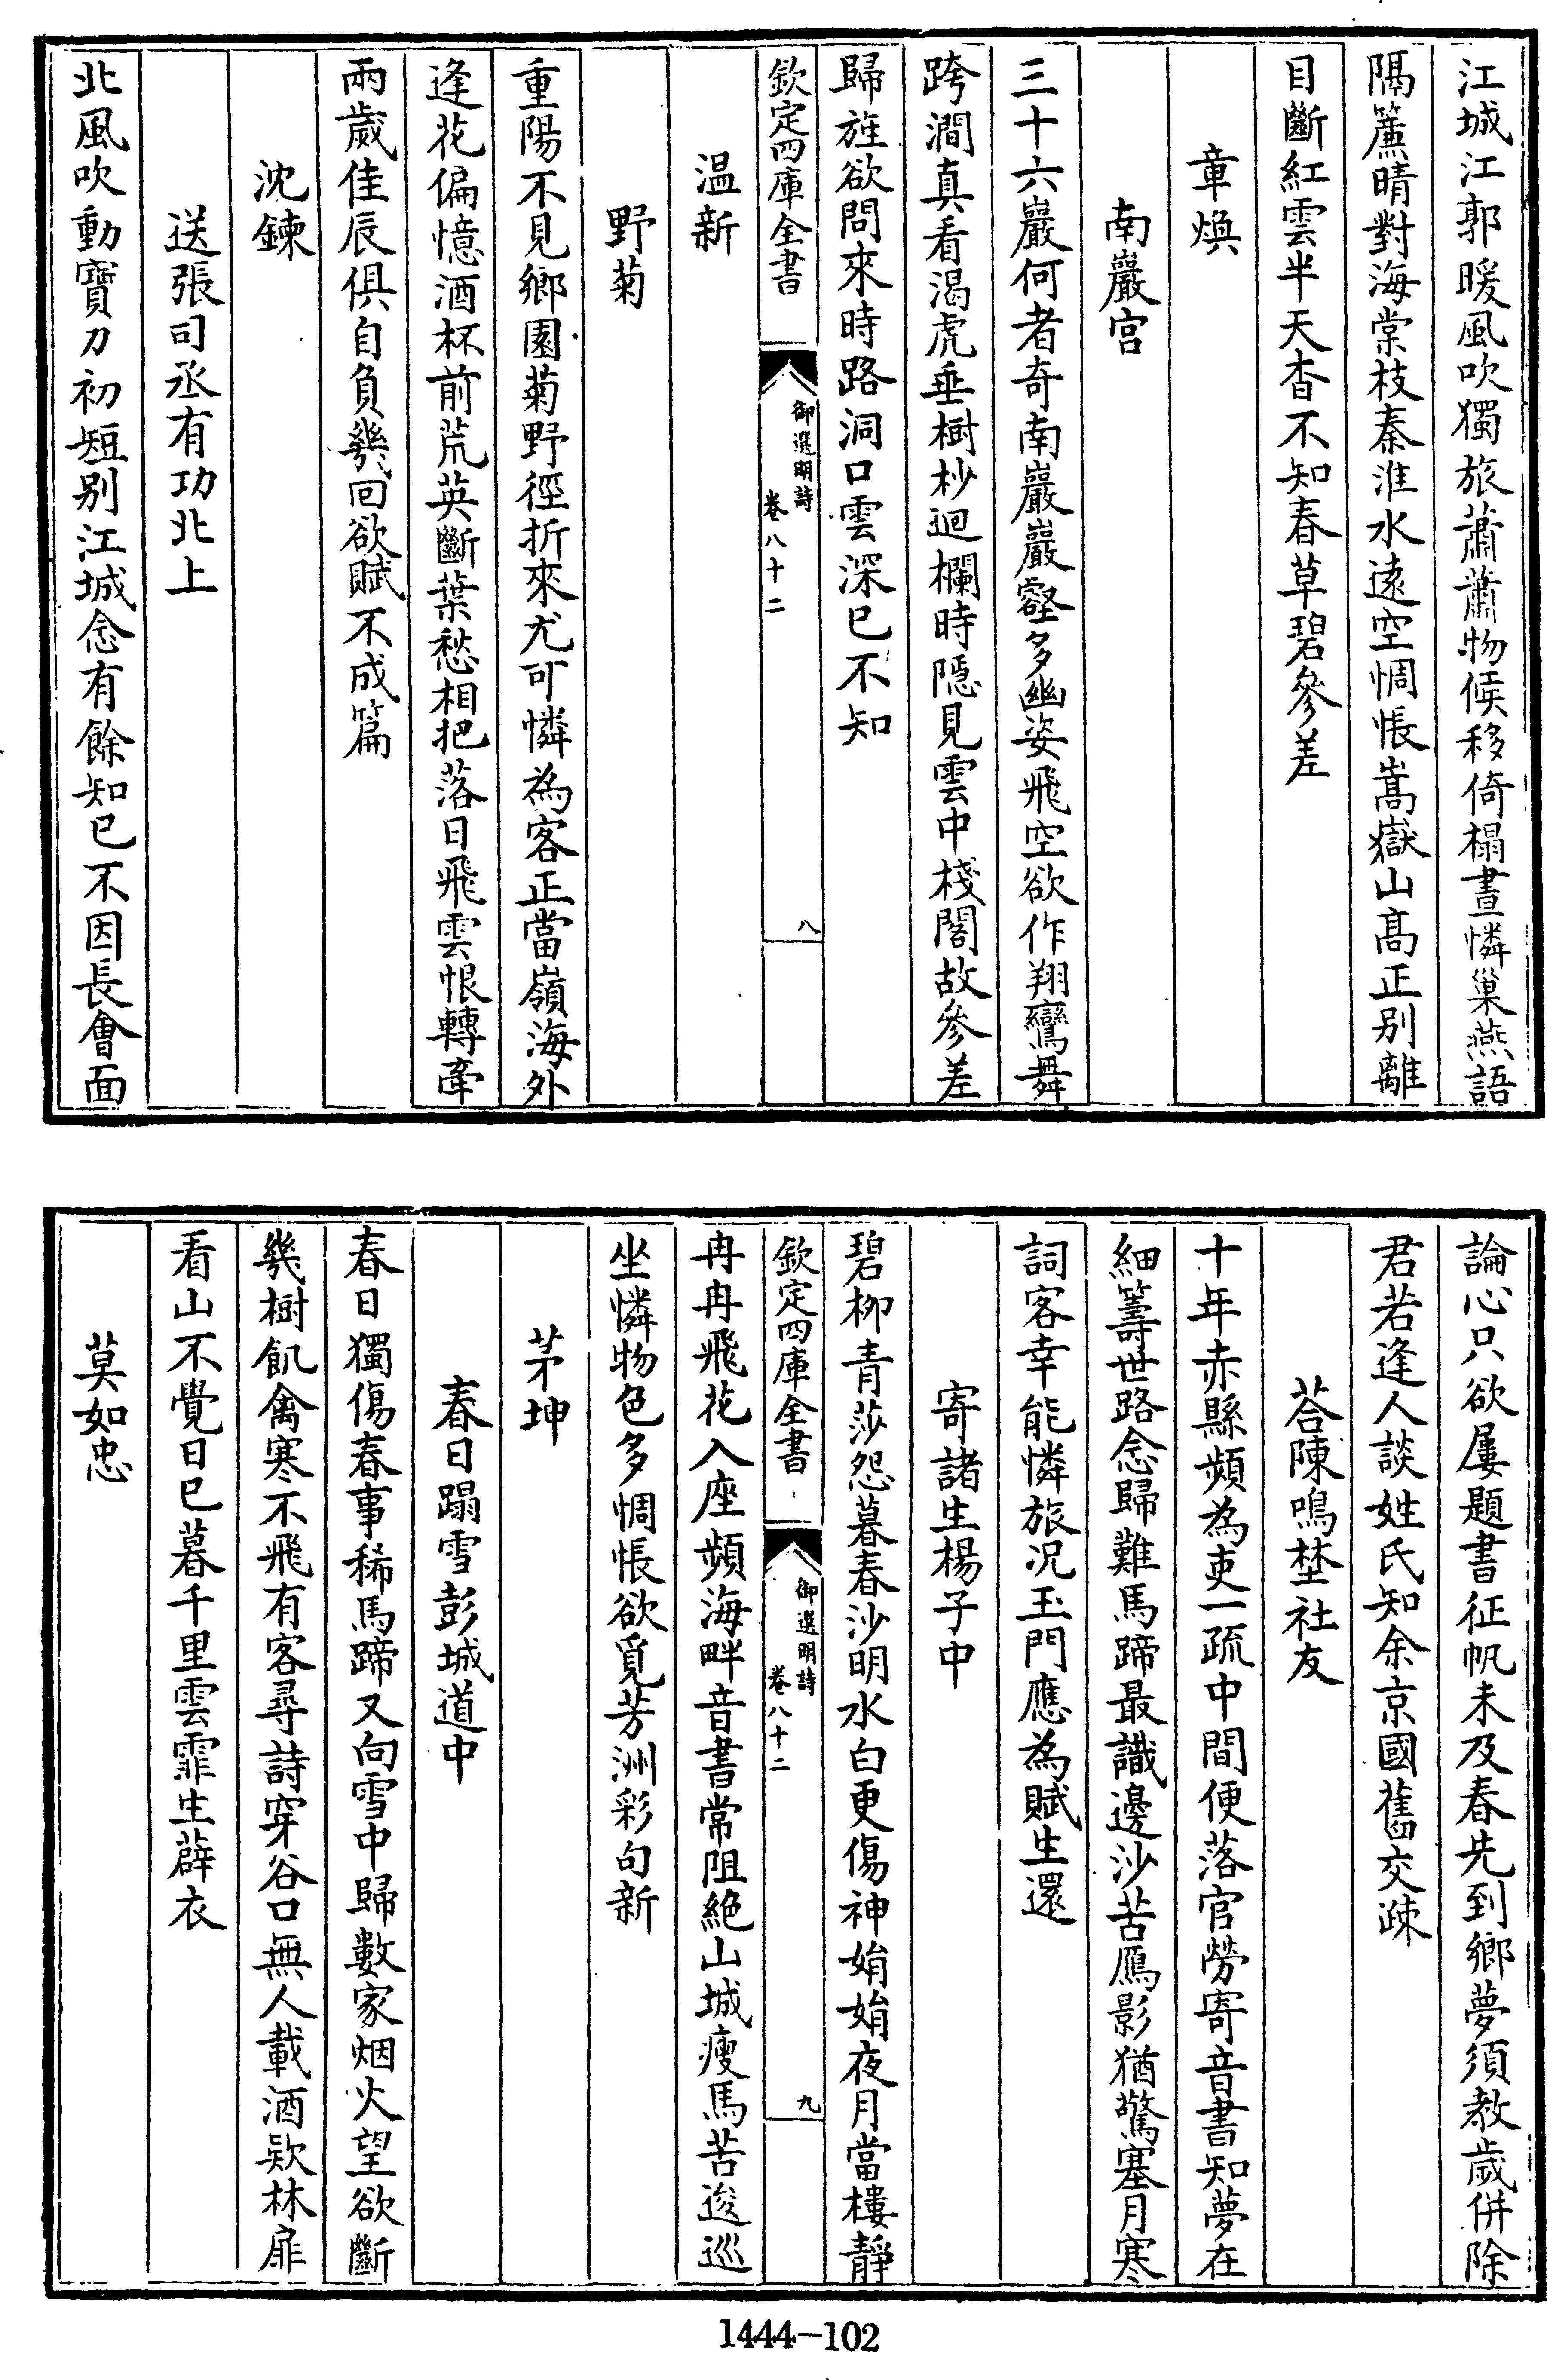 江城江郭暖風吹獨旅蕭蕭物候移倚榻晝憐巢燕語
隔簾晴對海棠枝秦淮水遠空惆悵嵩嶽山髙正别離
目斷紅雲半天杳不知春草碧參差
章煥
南巖宫
三十六巖何者奇南巖巖壑多幽姿飛空欲作翔鸞舞
跨澗真看渴虎垂樹杪迴欄時隱見雲中棧閣故參差
歸旌欲問來時路洞口雲深已不知
欽定四庫全書
御選明詩
卷八十二
八
温新
野菊
重陽不見鄉園菊野徑折來尤可憐為客正當嶺海外
逢花偏憶酒杯前荒英斷葉愁相把落日飛雲恨轉牽
兩歲佳辰俱自負幾回欲賦不成篇
沈鍊
送張司丞有功北上
北風吹動寶刀初短别江城念有餘知已不因長會面
論心只欲屢題書征帆未及春先到鄉夢須教歲併除
君若逢人談姓氏知余京國舊交疎
荅陳鳴埜社友
十年赤縣頻為吏一疏中間便落官勞寄音書知夢在
細籌世路念歸難馬蹄最識邊沙苦鴈影猶驚塞月寒
詞客幸能憐旅况玉門應為賦生還
寄諸生楊子中
碧柳青莎怨暮春沙明水白更傷神娟娟夜月當樓靜
欽定四庫全書
御選明詩
卷八十二
九
冉冉飛花入座頻海畔音書常阻絶山城瘦馬苦逡巡
坐憐物色多惆悵欲覓芳洲彩句新
茅坤
春日蹋雪彭城道中
春日獨傷春事稀馬蹄又向雪中歸數家烟火望欲斷
幾樹飢禽寒不飛有客尋詩穿谷口無人載酒欵林扉
看山不覺日已暮千里雲霏生薜衣
莫如忠
1444-102